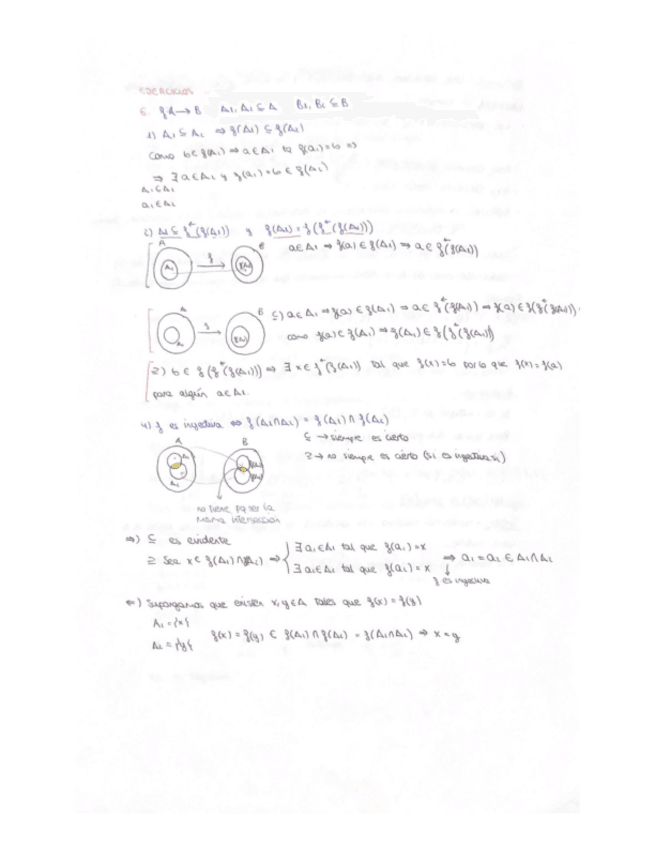 EJERCICIOS
6. f:A→B A1, A2 ⊆ A B1, B2 ⊆ B
1) A1 ⊆ A2 ⇒ f(A1) ⊆ f(A2)
Como b∈f(A1) ⇒ a∈A1 tq f(a1)=b ⇒
⇒ ∃ a∈A2 y f(a1)=b ∈ f(A2)
A1⊆A2
a1∈A2
2) A1 ⊆ f←(f(A1)) y f(A1) = f(f←(f(A1)))
A f B
A1 f(A1)
a∈A1 ⇒ f(a) ∈ f(A1) ⇒ a∈ f←(f(A1))
A f B
A1 f(A1)
⊆) a∈A1 ⇒ f(a) ∈ f(A1) ⇒ a∈ f←(f(A1)) ⇒ f(a) ∈ f(f←(f(A1)))
como f(a)∈f(A1) ⇒ f(A1) ∈ f(f←(f(A1)))
⊇) b∈ f(f←(f(A1))) ⇒ ∃ x∈ f←(f(A1)) tal que f(x)=b por lo que f(x)=f(a)
para algún a∈A1.
4) f es inyectiva ⇔ f(A1∩A2) = f(A1) ∩ f(A2)
A B
⊆ → siempre es cierto
⊇ → no siempre es cierto (si es inyectiva sí)
no tiene pq ser la
misma intersección
⇒) ⊆ es evidente
⊇ Sea x∈ f(A1)∩f(A2) ⇒ { ∃ a1∈A1 tal que f(a1)=x
∃ a2∈A2 tal que f(a2)=x ⇒ a1=a2 ∈ A1∩A2
f es inyectiva
⇐) Supongamos que existen x,y∈A tales que f(x)=f(y)
A1={x}
A2={y}
f(x)=f(y) ∈ f(A1)∩f(A2) = f(A1∩A2) ⇒ x=y